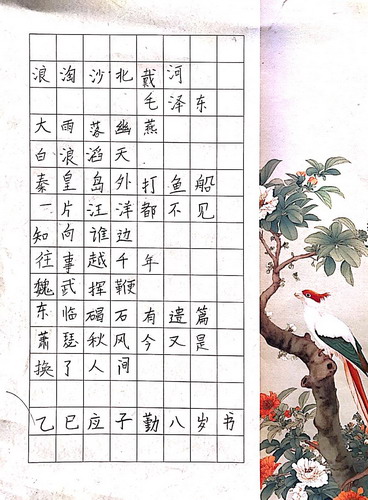 浪淘沙·北戴河
毛泽东
大雨落幽燕
白浪滔天
秦皇岛外打鱼船
一片汪洋都不见
知向谁边
往事越千年
魏武挥鞭
东临碣石有遗篇
萧瑟秋风今又是
换了人间
乙巳应子勤八岁书